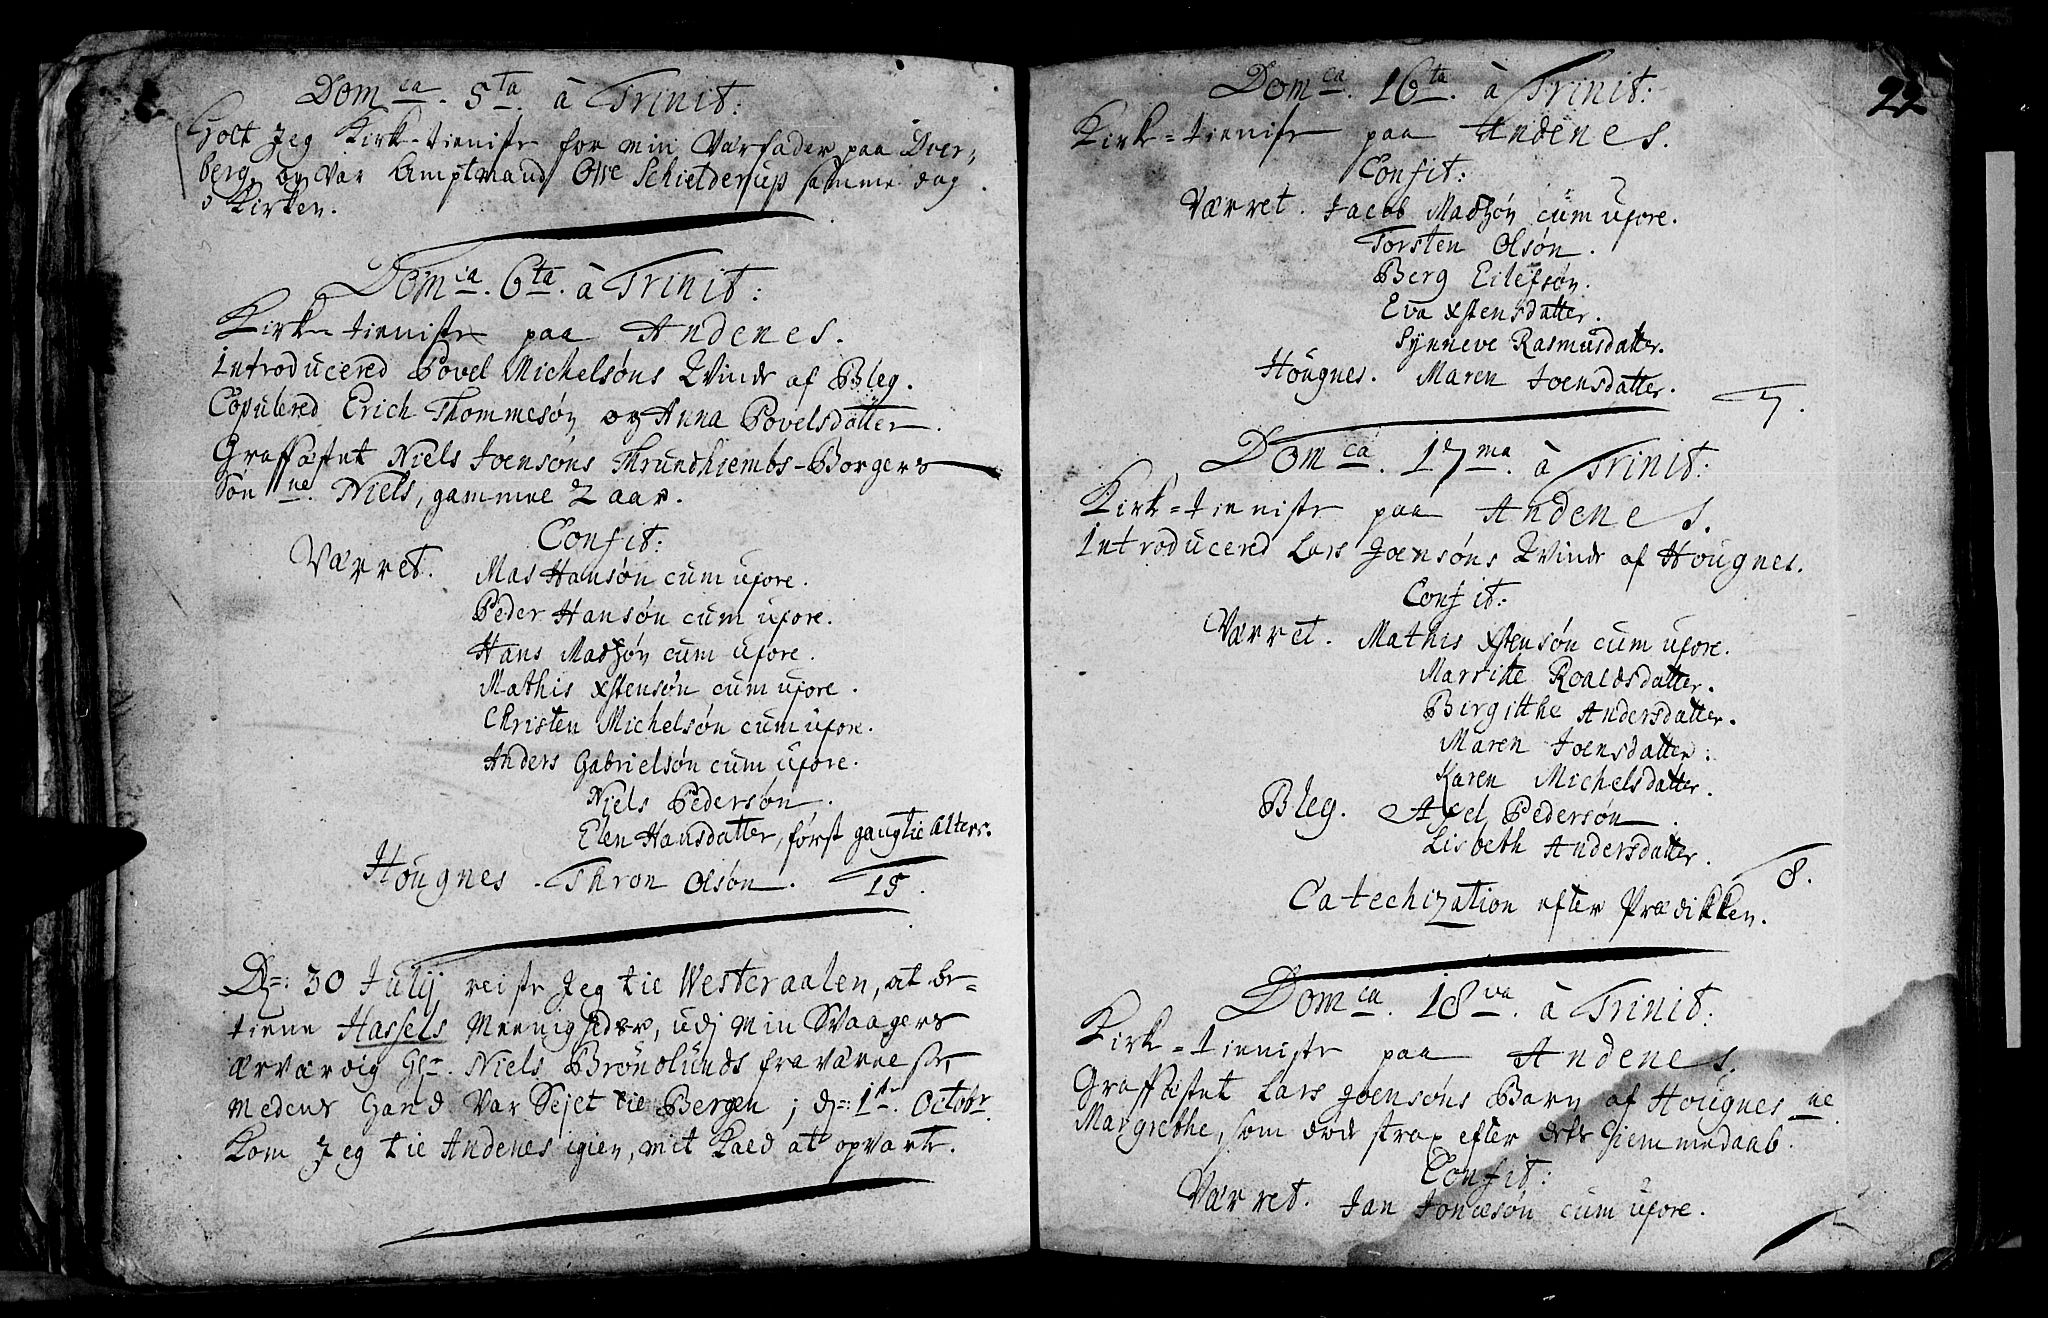 Domca. 5ta. à Trinit:
Holt Jeg Kirk-tieniste for min Værfader paa Dver,
berg, og var Amptmand Owe Schielderup samme dag
i Kirken.
Domca. 6ta. à Trinit:
Kirk-tieniste paa Andenes.
Introducered Povel Michelsøns Qvinde af Bleg.
Copulered Erich Thommesøn og Anna Povelsdatter.
Graffæstet Niels Joensøns Thrundhiembs-Borgers
Søn ne. Niels, gammel 2 aar.
Confit:
Værret. Mas Hansøn cum uxore.
Peder Hansøn cum uxore.
Hans Madsøn cum uxore.
Mathis Xstensøn cum uxore.
Christen Michelsøn cum uxore.
Anders Gabrielsøn cum uxore.
Niels Pedersøn.
Elen Hansdatter, først gang tie Alters.
Hougnes. Thron Olsøn. 15.
Dn: 30 Julij reiste Jeg tie Westeraalen, at be-
tiene Hassels Meenigheder, udj min Svaagers
Ærværdig Hr. Niels Brøndlunds fraværrelse,
medens hand var Sejet tie Bergen; dn: 1ste. Octobr
kom Jeg tie Andenes igien, mit kald at opvarte.
22
Domca. 16ta. à Trinit:
Kirk-tieniste paa Andenes.
Confit:
Værret. Jacob Madsøn cum uxore.
Torsten Olsøn.
Berg Eilefsøn.
Eva Xstensdatter.
Synneve Rasmusdatter.
Hougnes. Maren Joensdatter.
7.
Domca. 17ma. à Trinit:
Kirk-tieniste paa Andenes.
Introducered Lars Joensøns Qvinde af Hougnes.
Confit:
Værret. Mathis Xstensøn cum uxore.
Marrithe Roaldsdatter.
Birgitthe Andersdatter.
Maren Joensdatter.
Karen Michelsdatter.
Bleg. Axel Pedersøn.
Lisbeth Andersdatter.
8.
Catechization efter Prædikken.
Domca. 18va. à Trinit:
Kirk-tieniste paa Andenes.
Graffæstet Lars Joensøns Barn af Hougnes ne
Margrethe, som døde strax efter dets Hiemmedaab.
Confit:
Værret. Jan Jonæsøn cum uxore.